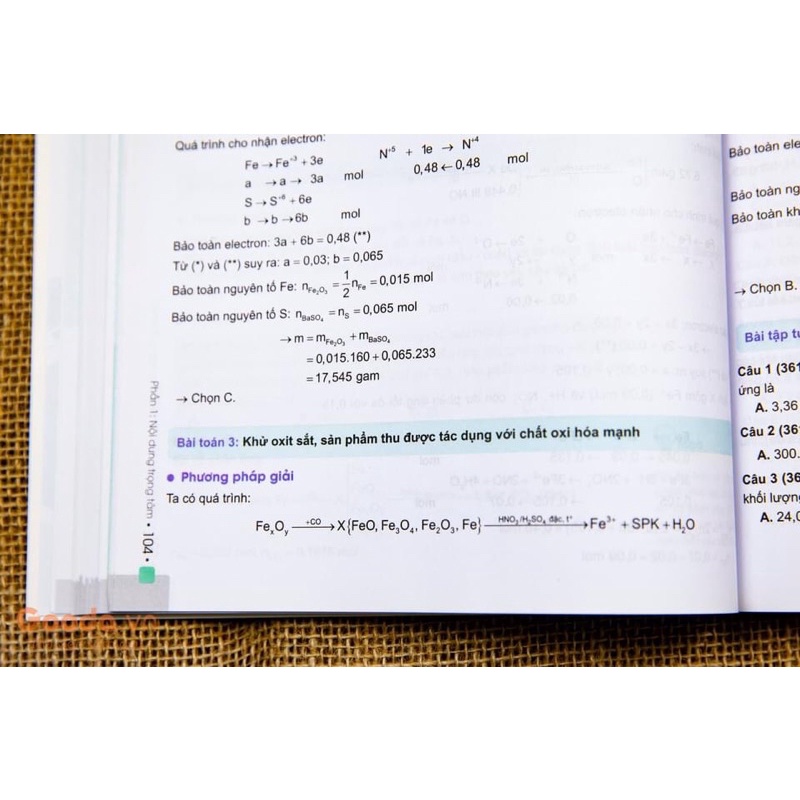 Quá trình cho nhận electron:
Fe → Fe⁺³ + 3e
a → a → 3a mol
S → S⁺⁶ + 6e
b → b → 6b mol
N⁺⁵ + 1e → N⁺⁴
0,48 ← 0,48 mol
Bảo toàn electron: 3a + 6b = 0,48 (**)
Từ (*) và (**) suy ra: a = 0,03; b = 0,065
Bảo toàn nguyên tố Fe: n_Fe₂O₃ = 1/2 n_Fe = 0,015 mol
Bảo toàn nguyên tố S: n_BaSO₄ = n_S = 0,065 mol
→ m = m_Fe₂O₃ + m_BaSO₄
= 0,015.160 + 0,065.233
= 17,545 gam
→ Chọn C.
Bài toán 3: Khử oxit sắt, sản phẩm thu được tác dụng với chất oxi hóa mạnh
• Phương pháp giải
Ta có quá trình:
FeₓOᵧ —+CO→ X{FeO, Fe₃O₄, Fe₂O₃, Fe} —HNO₃/H₂SO₄ đặc, t°→ Fe³⁺ + SPK + H₂O
Phần 1: Nội dung trọng tâm • 104 •
Bảo toàn ele
Bảo toàn ng
Bảo toàn kh
→ Chọn B.
Bài tập tự
Câu 1 (361
ứng là
A. 3,36
Câu 2 (36
A. 300.
Câu 3 (36
khối lượn
A. 24,0